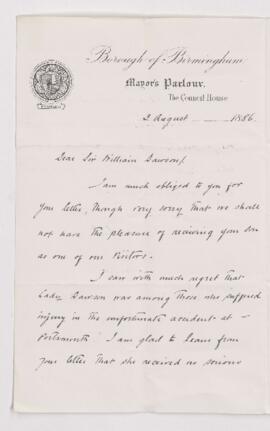 Borough of Birmingham
Mayor's Parlour.
The Council House
2 August 1886.
Dear Sir William Dawson,
I am much obliged to you for
your letter, though very sorry that we shall
not have the pleasure of receiving your son
as one of our Visitors.
I saw with much regret that
Lady Dawson was among those who suffered
injury in the unfortunate accident at
Portsmouth. I am glad to learn from
your letter that she received no serious